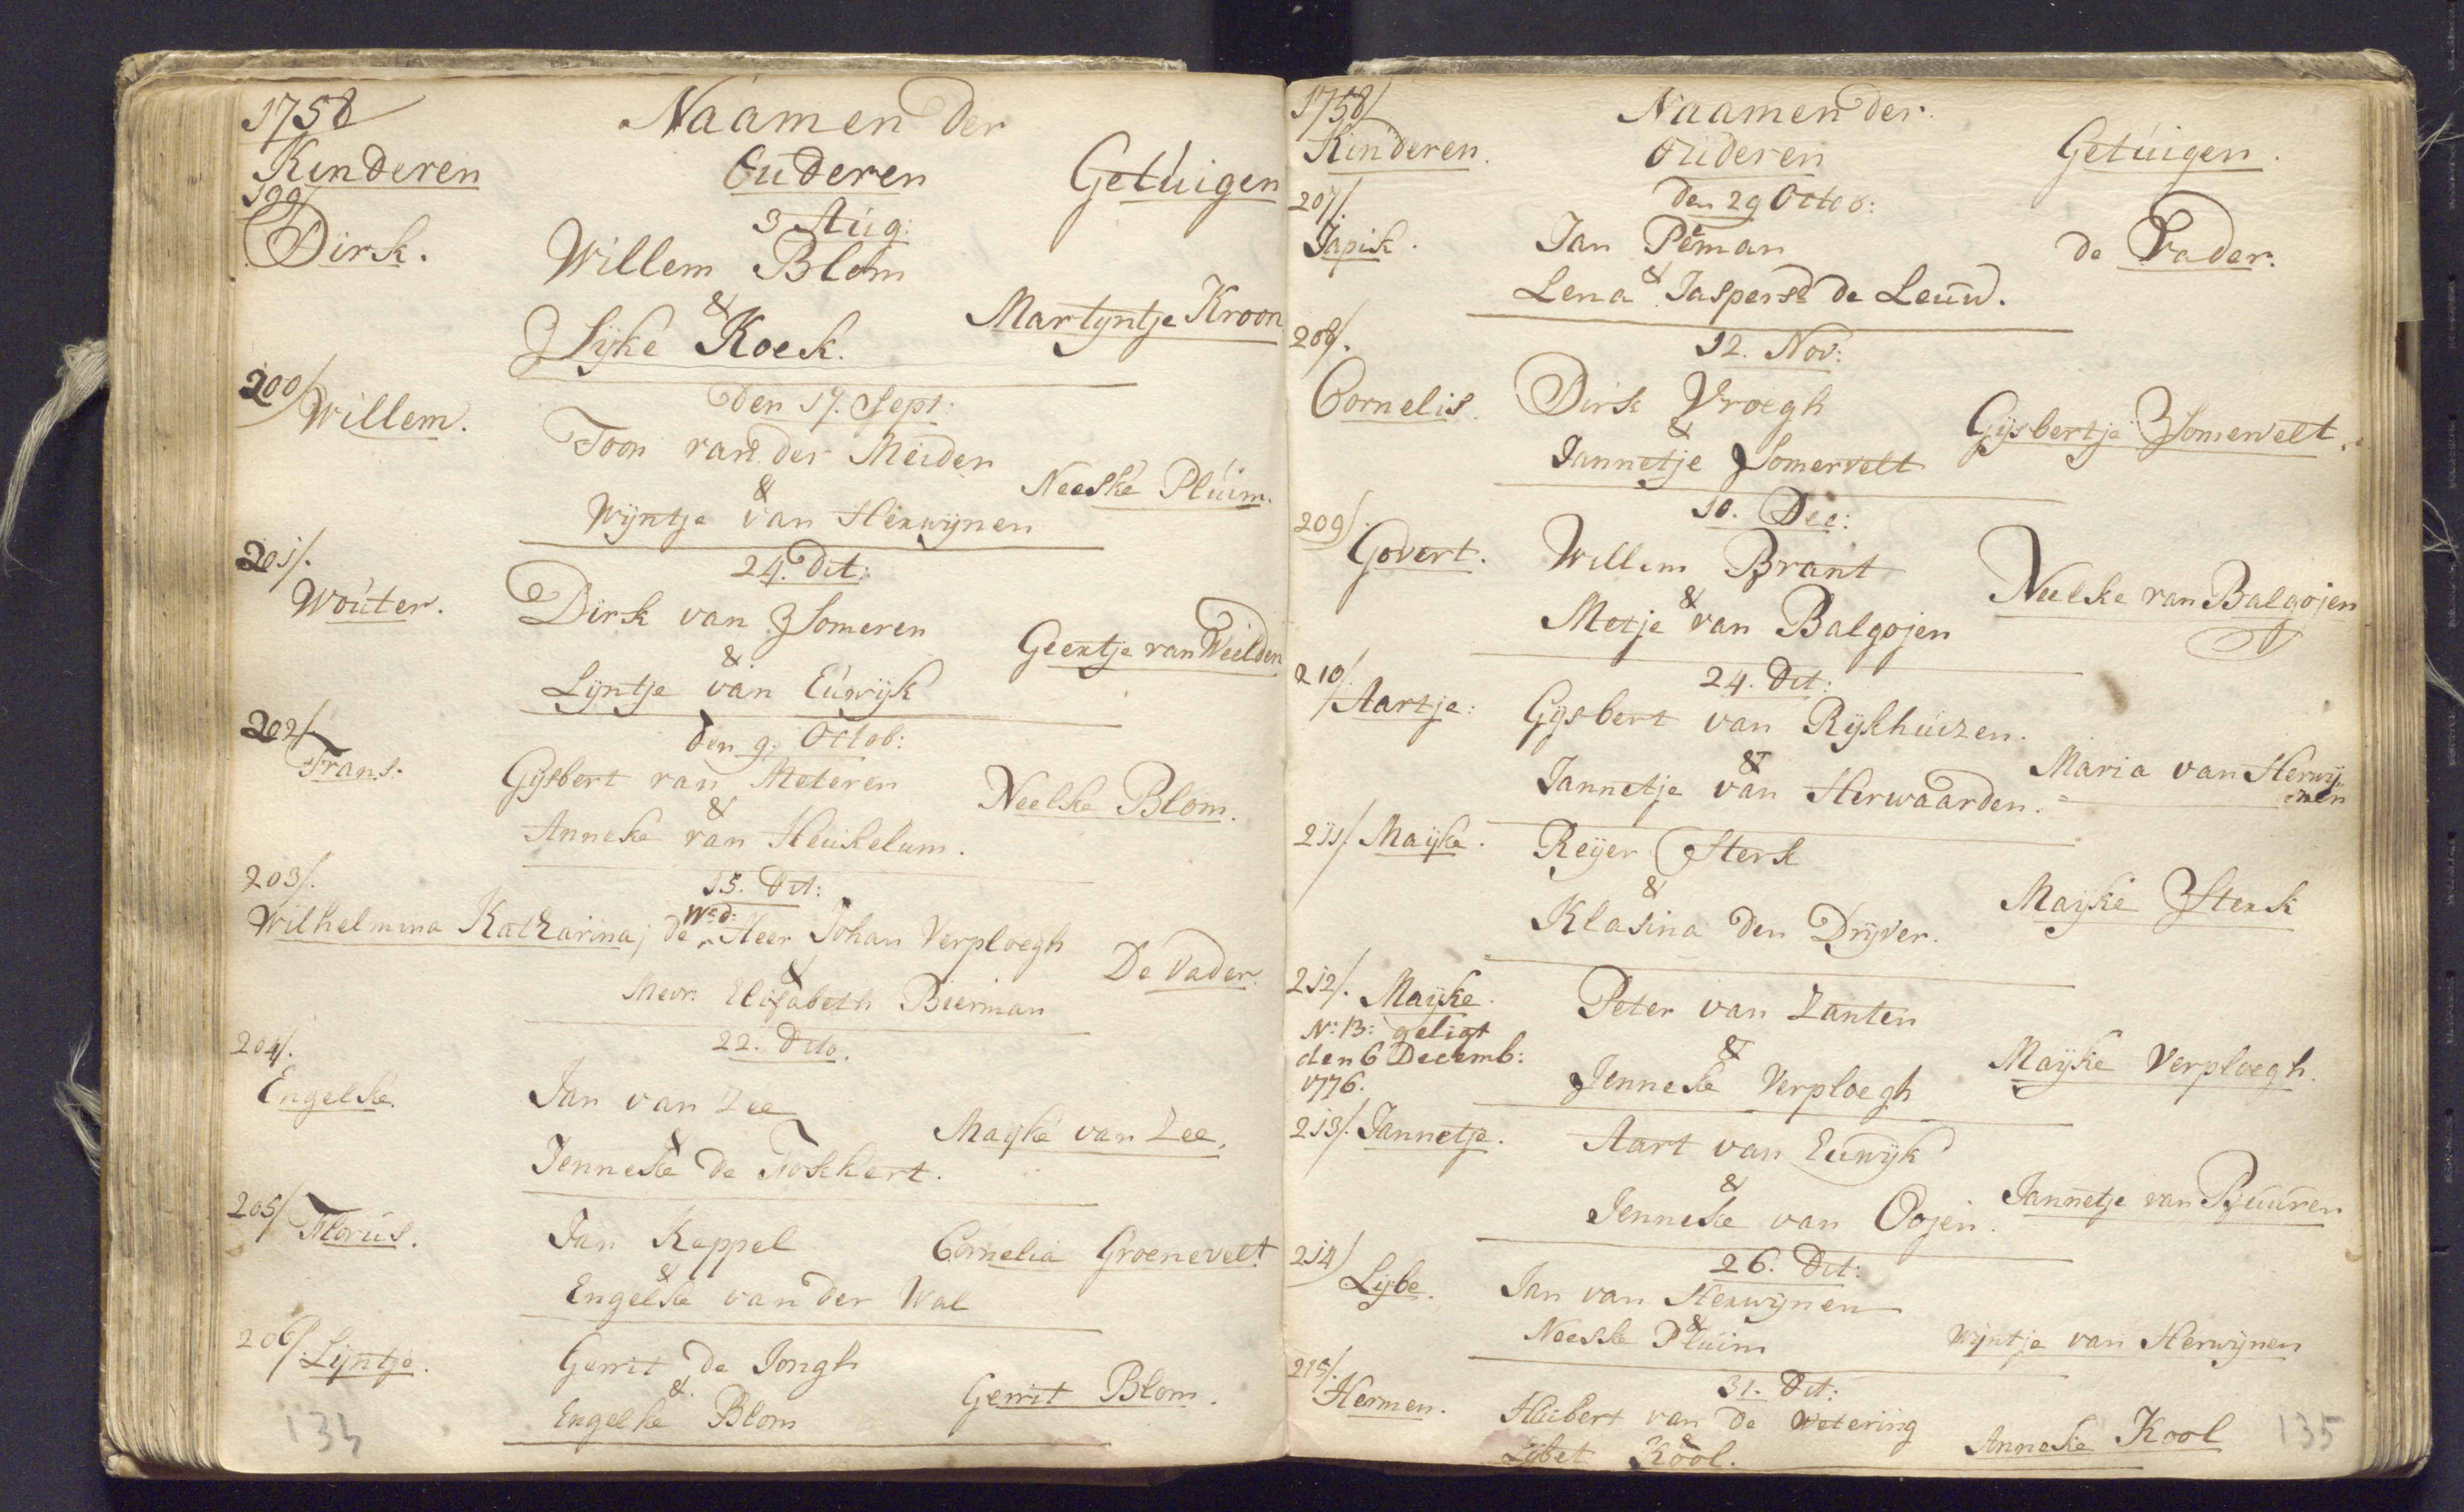 1758
Naamen der
Kinderen
Ouderen
Getuigen
199/
3 Aug:
Dirk.
Willem Blom
&
Sijke Koek.
Martyntje Kroon
200/
Den 17. Sept:
Willem.
Toon van der Meiden
&
Wijntje van Herwijnen
Neeske Pluim.
201/.
24. Dit:
Wouter.
Dirk van Someren
&
Lijntje van Euwijk
Geertje van Weelden
202/
den 9. Octob:
Frans.
Gijsbert van Meteren
&
Anneke van Heukelum.
Neelke Blom.
203/.
15. Dit:
Wilhelmina Katharina; de Wed: Heer Johan Verploegh
&
Mevr: Elisabeth Bierman
De Vader.
204/.
22. Dito.
Engelke.
Jan van Zee
&
Jenneke de Fokkert.
Mayke van Zee.
205/
Florus.
Jan Keppel
&
Engelke van der Wal
Cornelia Groenevelt
206/.
Lijntje.
Gerrit de Jongh
&.
Engelke Blom
Gerrit Blom.
134
1758/
Naamen der.
Kinderen.
Ouderen
Getuigen.
207/.
Den 29 Octob:
Japik.
Jan Peman
&
Lena Jasperse de Leuw.
de Vader.
208/.
12. Nov:
Cornelis.
Dirk Vroegh
&
Jannetje Somervelt
Gijsbertje Somervelt.
209/.
10. Dec:
Govert.
Willem Brant
&
Metje van Balgojen
Neelke van Balgojen
210/.
24. Dit:
Aartje:
Gijsbert van Rijkhuizen.
&
Jannetje van Herwaarden.
Maria van Herwij=
=nen
211/. Mayke.
Reijer Sterk
&
Klasina den Drijver.
Mayke Sterk
212/. Mayke.
No: 13: geligt
den 6 Decemb:
1776.
Peter van Zanten
&
Jenneke Verploegh
Mayke Verploegh.
213/. Jannetje.
Aart van Euwijk
&
Jenneke van Oojen.
Jannetje van Buuren
214/
26. Dit:
Lijbe.
Jan van Herwijnen
&
Neeske Pluim
Wijntje van Herwijnen
215/.
31. Dit:
Hermen.
Huibert van de Wetering
&
Lijbet Kool.
Anneke Kool
135